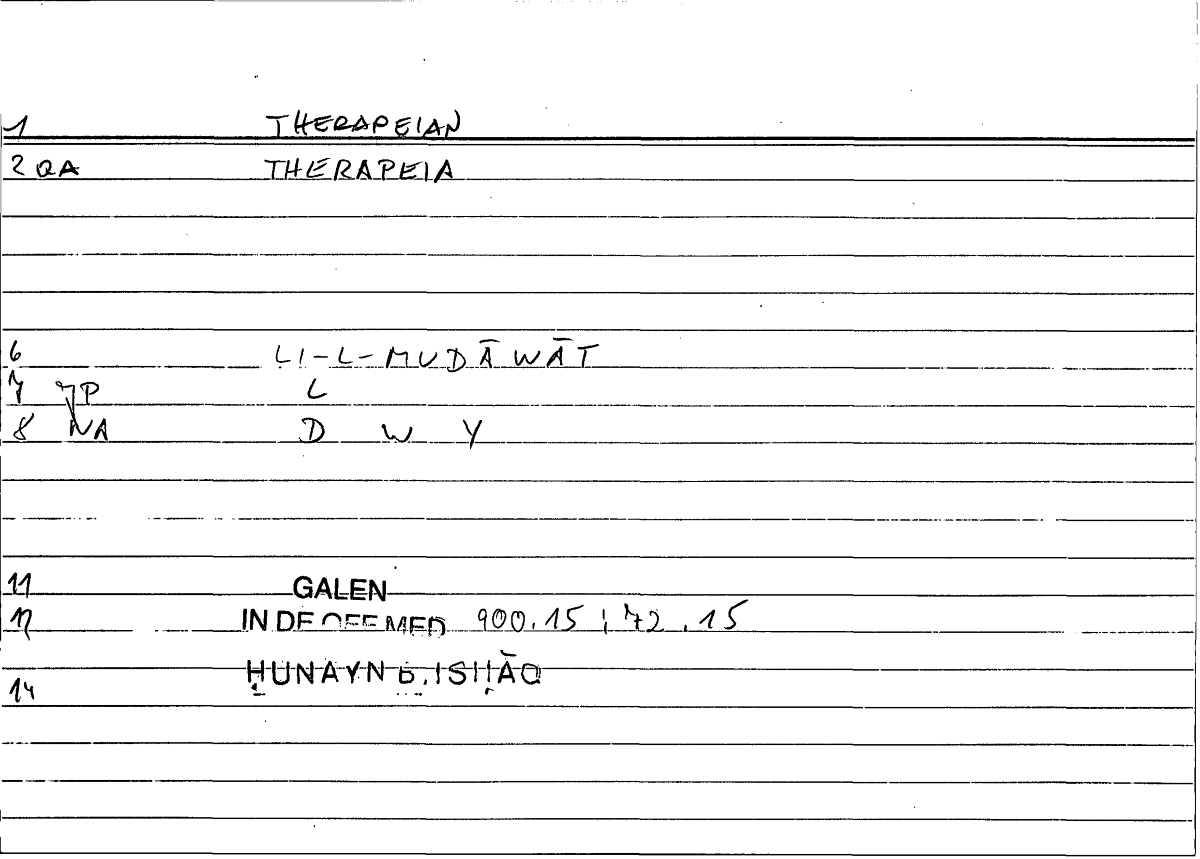 1 THERAPEIAN
2 QA THERAPEIA
6 LI-L-MUDĀWĀT
7 JP L
8 NA D W Y
11 GALEN
12 IN DE OFF MED 900.15 ; 72.15
ḤUNAYN B. ISḤĀQ
14